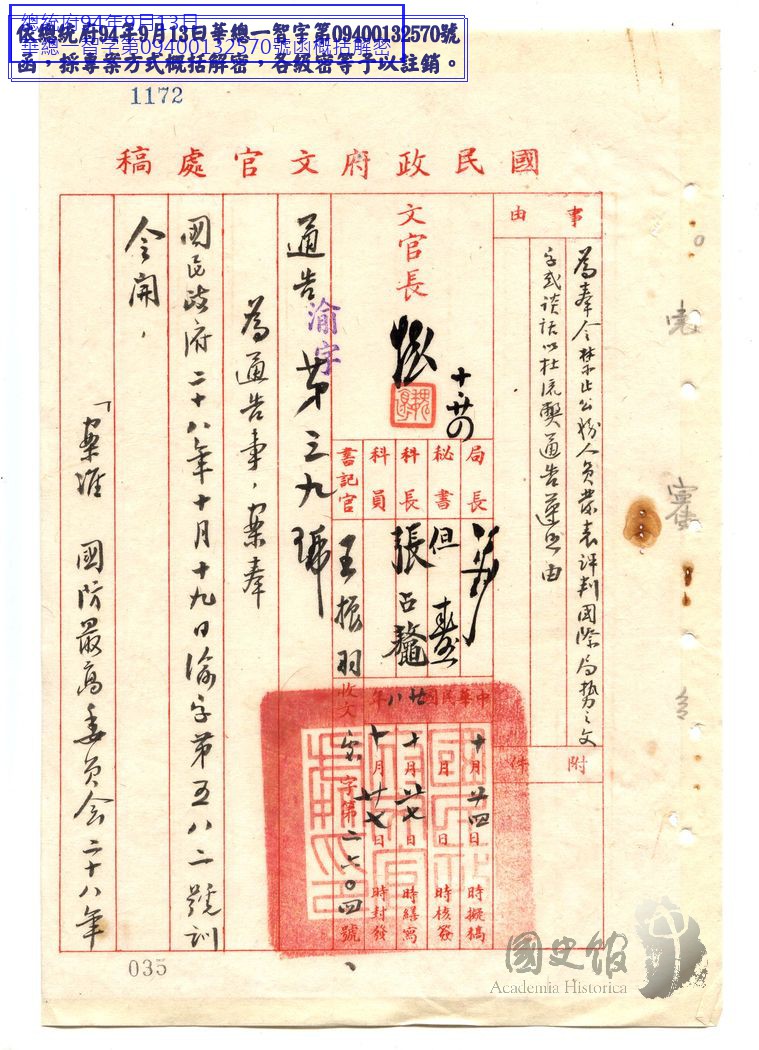 總統府94年9月13日
華總一智字第09400132570號函概括解密
依總統府94年9月13日華總一智字第09400132570號
函，採專案方式概括解密，各級密等予以註銷。
1172
國民政府文官處稿
事由
為奉令禁止公務人員發表評判國際局勢之文
字或談話以杜流弊通告遵照由
附件
文官長
十、廿四
局長
秘書
但燾
科長
張占鰲
科員
書記官
王振羽
中華民國廿八年
十月廿四日 時擬稿
月 日 時核簽
十月廿七日 時繕寫
十月廿七日 時封發
收文 字第二六〇四號
通告渝字第三九號
為通告事，案奉
國民政府二十八年十月十九日渝字第五八二號訓
令開，
「案准 國防最高委員會二十八年
035
國史館
Academia Historica